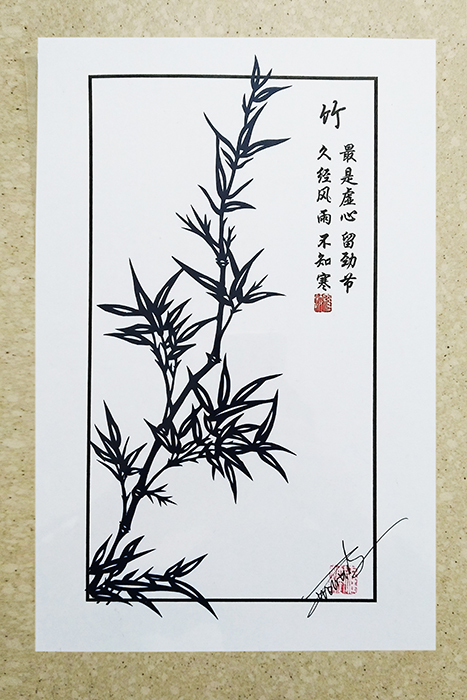 竹
最是虚心留劲节
久经风雨不知寒